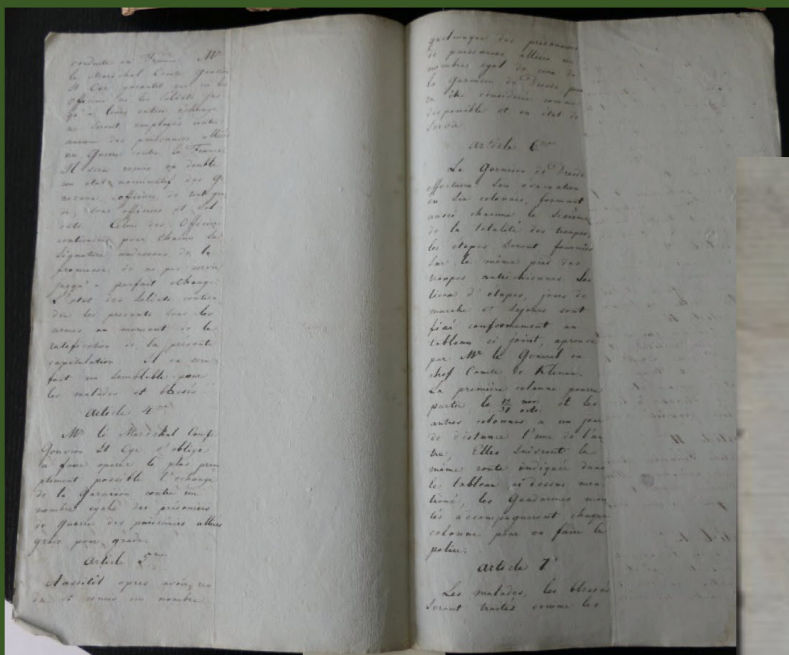 conduite en France. Mr
le Maréchal Comte Gouvion
St Cyr garantit que ni les
officiers ni les soldats jus
qu'à leur entier échange
ne seront employés contre
aucune des puissances alliées
en Guerre contre la France
Il sera remis en double
un état nominatif des Gé
néraux, officiers de tout gra
de, sous officiers et Sol
dats. Celui des Officiers
contiendra pour chacun la
signature de la
promesse de ne pas servir
jusqu'à parfait échange
L'état des Soldats contien
dra les présents sous les
armes au moment de la
ratification de la présente
capitulation. Il en sera
fait un semblable pour
les malades et blessés
Article 4
Mr le Maréchal Comte
Gouvion St Cyr s'oblige
à faire opérer le plus prom
ptement possible l'échange
de la Garnison contre un
nombre égal des prisonniers
de Guerre des puissances alliées
grade pour grade.
Article 5
Aussitôt après avoir ren
du et remis un nombre
quelconque des prisonniers
de puissances alliées un
nombre égal de ceux de
la Garnison de Dresde pour
ra être considéré comme
disponible et en état de
servir
Article 6
La Garnison de Dresde
effectuera son évacuation
en six colonnes, formant
aussi chacune le sixième
de la totalité des troupes,
les étapes seront fournies
sur le même pied des
troupes autrichiennes. Les
lieux d'étapes, jours de
marche et séjours sont
fixés conformément au
tableau ci joint, approuvé
par Mr le Général en
chef Comte de Klenau.
La première colonne pourra
partir le 12 nov. et les
31 octo.
autres colonnes à un jour
de distance l'une de l'au
tre, Elles suivront la
même route indiquée dans
le tableau ci dessus men
tionné, les Gendarmes mon
tés accompagneront chaque
colonne pour en faire la
police.
Article 7
Les malades, les blessés
seront traités comme les